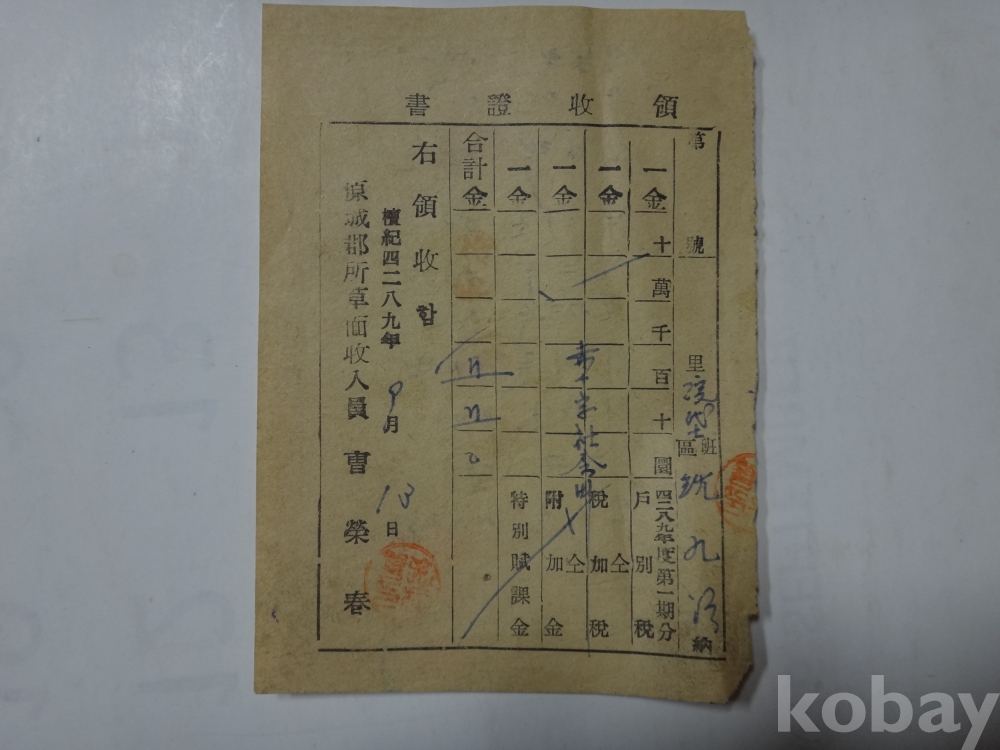 領收證書
第 號 里 班 區 九 納
一金 十萬千百十圜 四二八九年度第一期分 戶別稅
一金 仝 稅加稅
一金 赤十字社 仝 附加金
一金 特別賦課金
合計金
右領收함
檀紀四二八九年 9月 13日
原城郡所草面收入員 曺榮春
kobay